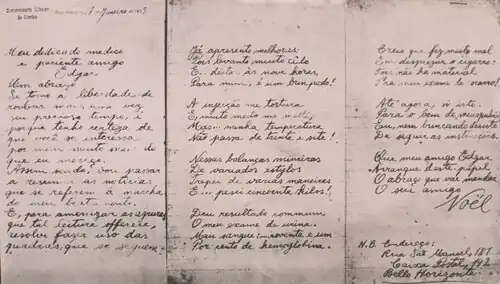 Meu dedicado medico
e paciente amigo
Edgar.
Um abraço
Eu tomo a liberdade de
roubar mais uma vez
seu precioso tempo, é
porque tenho certeza de
que você se interessa
por mim muito mais do
que eu mereço.
Assim sendo, vou passar
a resumir as noticias
que se referem á marcha
do meu tratamento.
E, para amenizar as agruras
que tal leitura offerece,
resolvi fazer uso das
quadras, que se seguem
Já apresento melhoras:
Pois levanto muito cêdo
E... deitar ás nove horas,
Para mim, é um brinquedo!
A injecção me tortura
E muito medo me mette,
Mas... minha temperatura
Não passa de trinta e sete!
Nessas balanças mineiras
De variados estylos
Trepei de varias maneiras
E... pesei cincoenta kilos!
Deu resultado commum
O meu exame de urina.
Meu sangue:_ noventa e um
Por cento de hemoglobina.
Creio que fiz muito mal
Em desprezar o cigarro:
Pois não ha material
Pra meu exame de escarro!
Até agora, só isto.
Para o bem dos meus
Eu, nem brincando desisto
De seguir as instrucções.
Que meu amigo Edgar
Arranque deste papel
O abraço que vae mandar
O seu amigo
Noël
N.B. Endereço:
Rua Sat. Manoel, 187.
Caixa Postal,
Bello Horizonte.